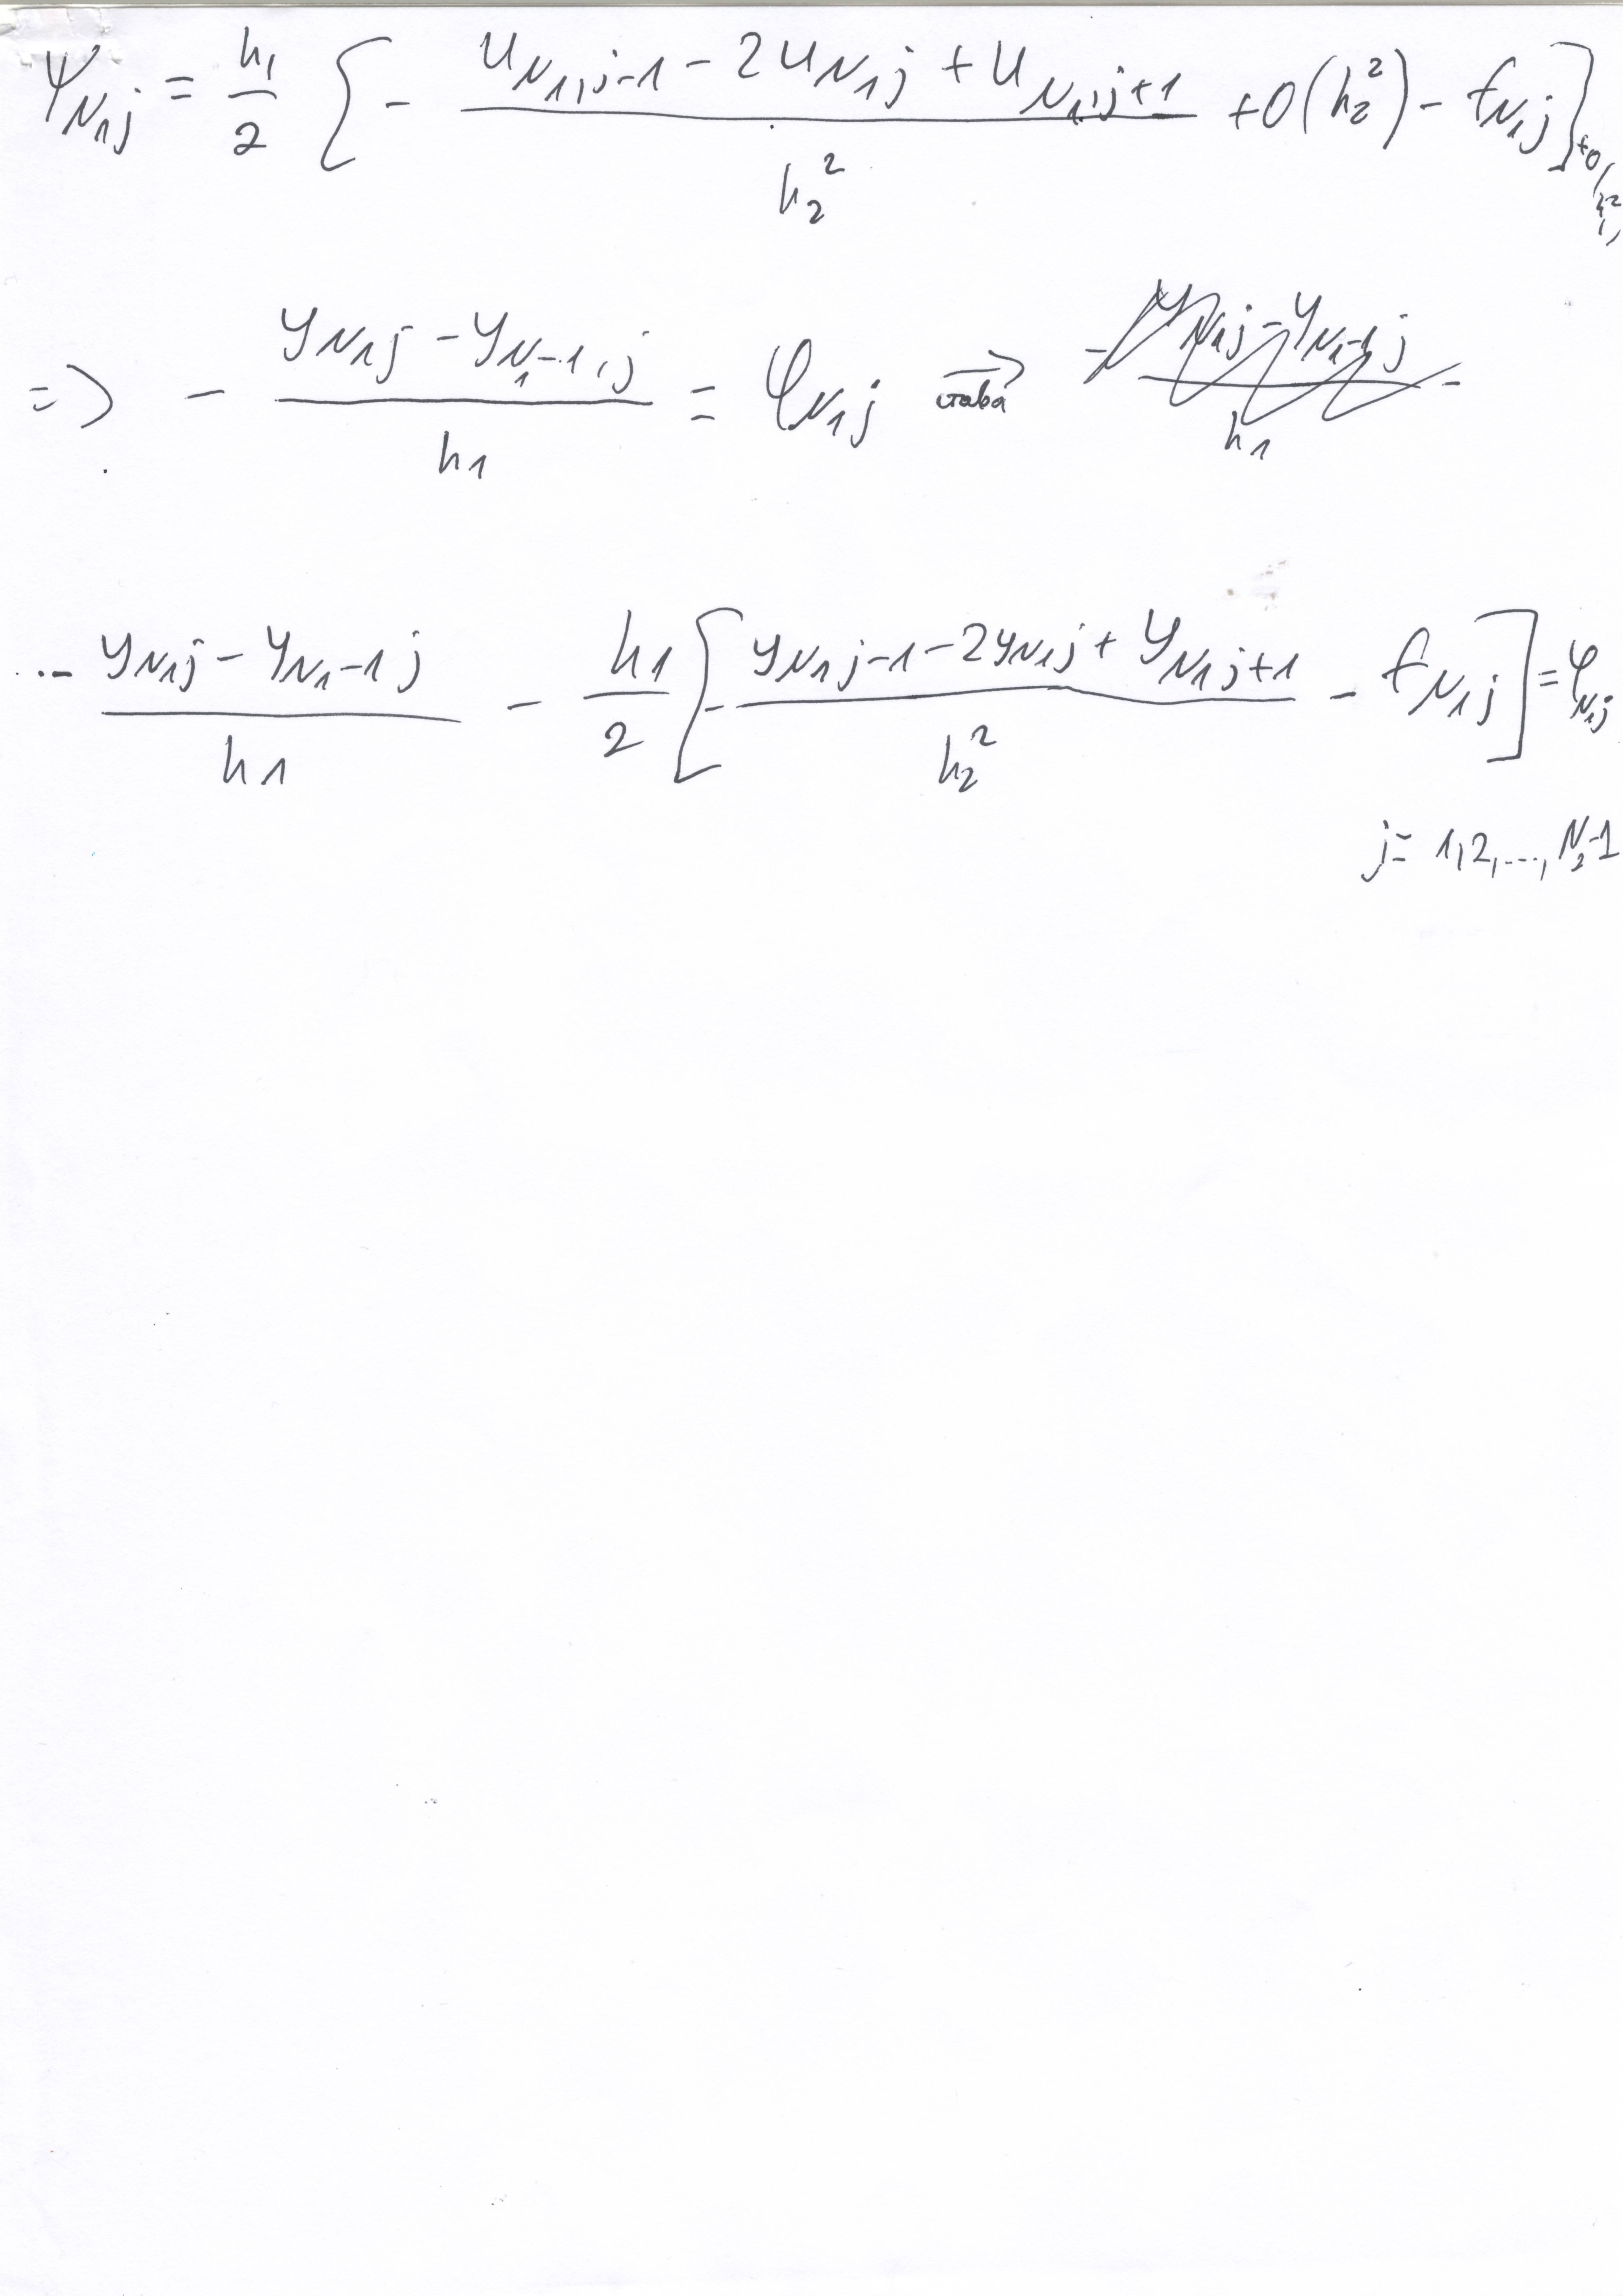 ψ_{N₁j} = h₁/2 [ - (u_{N₁,j-1} - 2u_{N₁j} + u_{N₁,j+1})/h₂² + O(h₂²) - f_{N₁j} ] + O(h₁²)
=> - (y_{N₁j} - y_{N₁-1,j})/h₁ = φ_{N₁j} →става - (y_{N₁j} - y_{N₁-1j})/h₁ -
- (y_{N₁j} - y_{N₁-1j})/h₁ - h₁/2 [ - (y_{N₁j-1} - 2y_{N₁j} + y_{N₁j+1})/h₂² - f_{N₁j} ] = φ_{N₁j}
j = 1,2,...,N₂-1